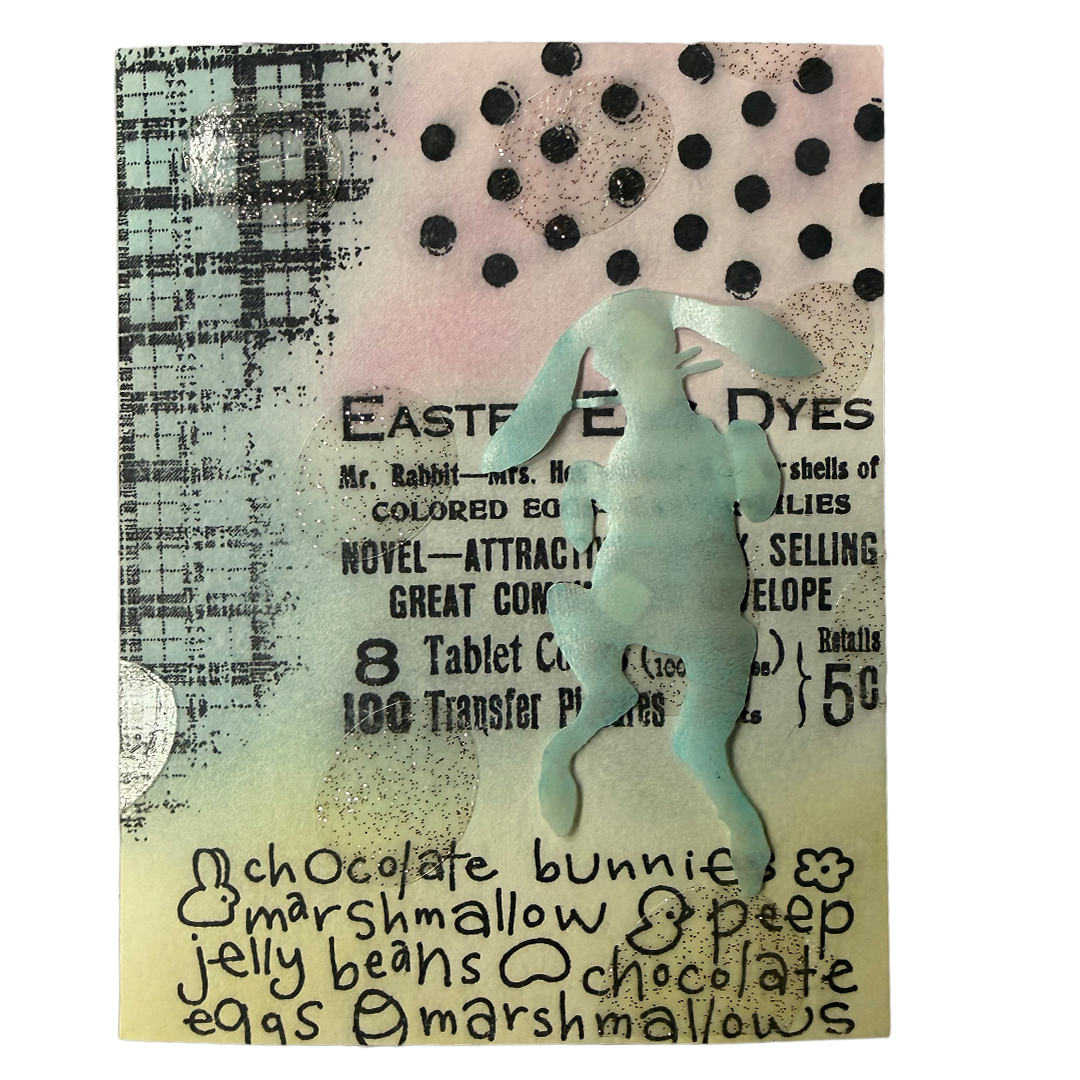 EASTE E DYES
Mr. Rabbit—Mrs. He shells of
COLORED EG ILIES
NOVEL—ATTRACTI SELLING
GREAT CON VELOPE
8 Tablet Co (100 es) Retails
100 Transfer Pi res ts 5¢
chocolate bunnies
marshmallow peep
jelly beans chocolate
eggs marshmallows